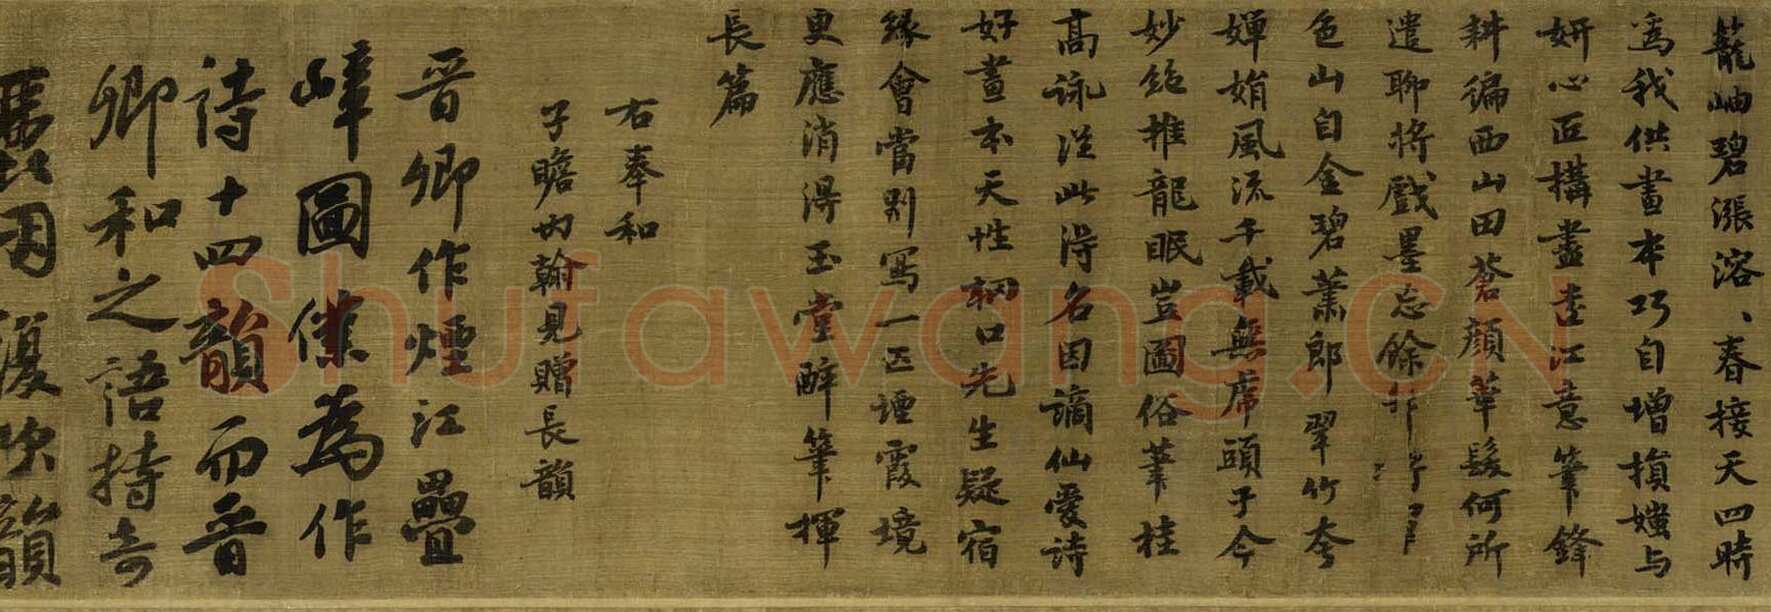 籠岫碧漲溶、春接天四時
為我供畫本巧自增損媸与
妍心匠構盡遠江意筆鋒
耕徧西山田蒼顏華髮何所
遣聊將戲墨忘餘
色山自金碧蕭郎翠竹夸
嬋娟風流千載無席頭子今
妙絶推龍眠豈圖俗筆桂
高詠從此得名因謫仙愛詩
好畫本天性輞口先生疑宿
緣會當別寫一匹煙霞境
更應消得玉堂醉筆揮
長篇
右奉和
子瞻内翰見贈長韻
晉卿作煙江疊
嶂圖僕為作
詩十四韻而晉
卿和之語特奇
麗因復次韻
Shufawang.CN